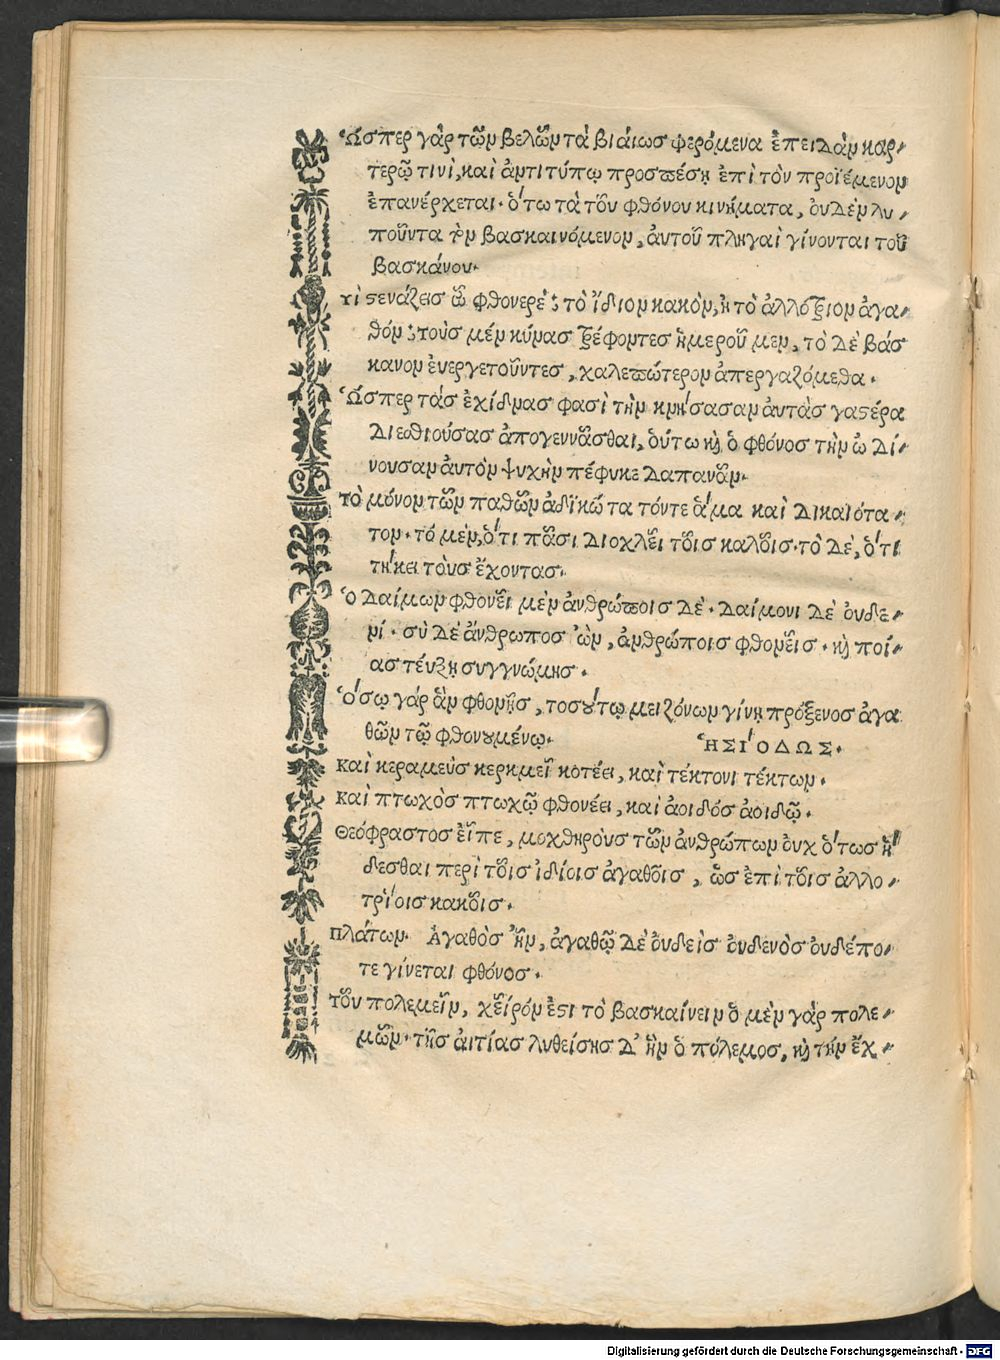 Ὥσπερ γὰρ τῶν βελῶν τὰ βιάιως φερόμενα ἐπειδὰν καρ-
τερῷ τινὶ, καὶ ἀντιτύπῳ προσπέσῃ ἐπὶ τὸν προϊέμενον
ἐπανέρχεται. ὅτω τὰ τοῦ φθόνου κινήματα, ὀυδὲν λυ-
ποῦντα τὸν βασκαινόμενον, ἀυτοῦ πληγαὶ γίνονται τοῦ
βασκάνου.
Τὶ ϛενάζεις ὦ φθονερὲ; τὸ ἴδιον κακὸν, ἢ τὸ ἀλλότριον ἀγα-
θόν; τοὺς μὲν κύνας τρέφοντες ἡμεροῦμεν, τὸ δὲ βάσ
κανον ἐυεργετοῦντες, χαλεπώτερον ἀπεργαζόμεθα.
Ὥσπερ τάς ἐχίδνας φασὶ τὴν κυήσασαν ἀυτὰς γαϛέρα
διεσθιούσας ἀπογεννᾶσθαι, ὁύτω καὶ ὁ φθόνος τὴν ὠδί-
νουσαν ἀυτὸν ψυχὴν πέφυκε δαπανᾶν.
Τὸ μόνον τῶν παθῶν ἀδικώτατόν τε ἅμα καὶ δικαιότα-
τον. τὸ μὲν, ὅτι πᾶσι διοχλεῖ τοῖς καλοῖς. τὸ δὲ, ὅτι
τήκει τὸυς ἔχοντας.
Ὁ δαίμων φθονεῖ μὲν ἀνθρώποις δὲ. δαίμονι δὲ ὀυδε-
νί. σὺ δὲ ἄνθρωπος ὢν, ἀνθρώποις φθονεῖς. καὶ ποί-
ας τέυξῃ συγγνώμης.
Ὅσῳ γάρ ἂν φθονῇς, τοσούτῳ μειζόνων γίνῃ πρόξενος ἀγα
θῶν τῷ φθονουμένῳ. ἩΣΙΌΔΩΣ.
Καὶ κεραμεὺς κεραμεῖ κοτέει, καὶ τέκτονι τέκτων.
Καὶ πτωχὸς πτωχῷ φθονέει, καὶ ἀοιδός ἀοιδῷ.
Θεόφραστος εἶπε, μοχθηρὸυς τῶν ἀνθρώπων ὀυχ ὅτως ἥ
δεσθαι περὶ τοῖς ἰδίοις ἀγαθοῖς, ὡς ἐπὶ τοῖς ἀλλο-
τρίοις κακοῖς.
Πλάτων. Ἀγαθὸς ἦν, ἀγαθῷ δὲ ὀυδεὶς ὀυδενὸς ὀυδέπο-
τε γίνεται φθόνος.
Τοῦ πολεμεῖν, χεῖρόν ἐϛι τὸ βασκαίνειν ὁ μὲν γὰρ πολε-
μῶν. τῆς ἀιτίας λυθείσης δ' ἣν ὁ πόλεμος, καὶ τήν ἔχ-
Digitalisierung gefördert durch die Deutsche Forschungsgemeinschaft - DFG